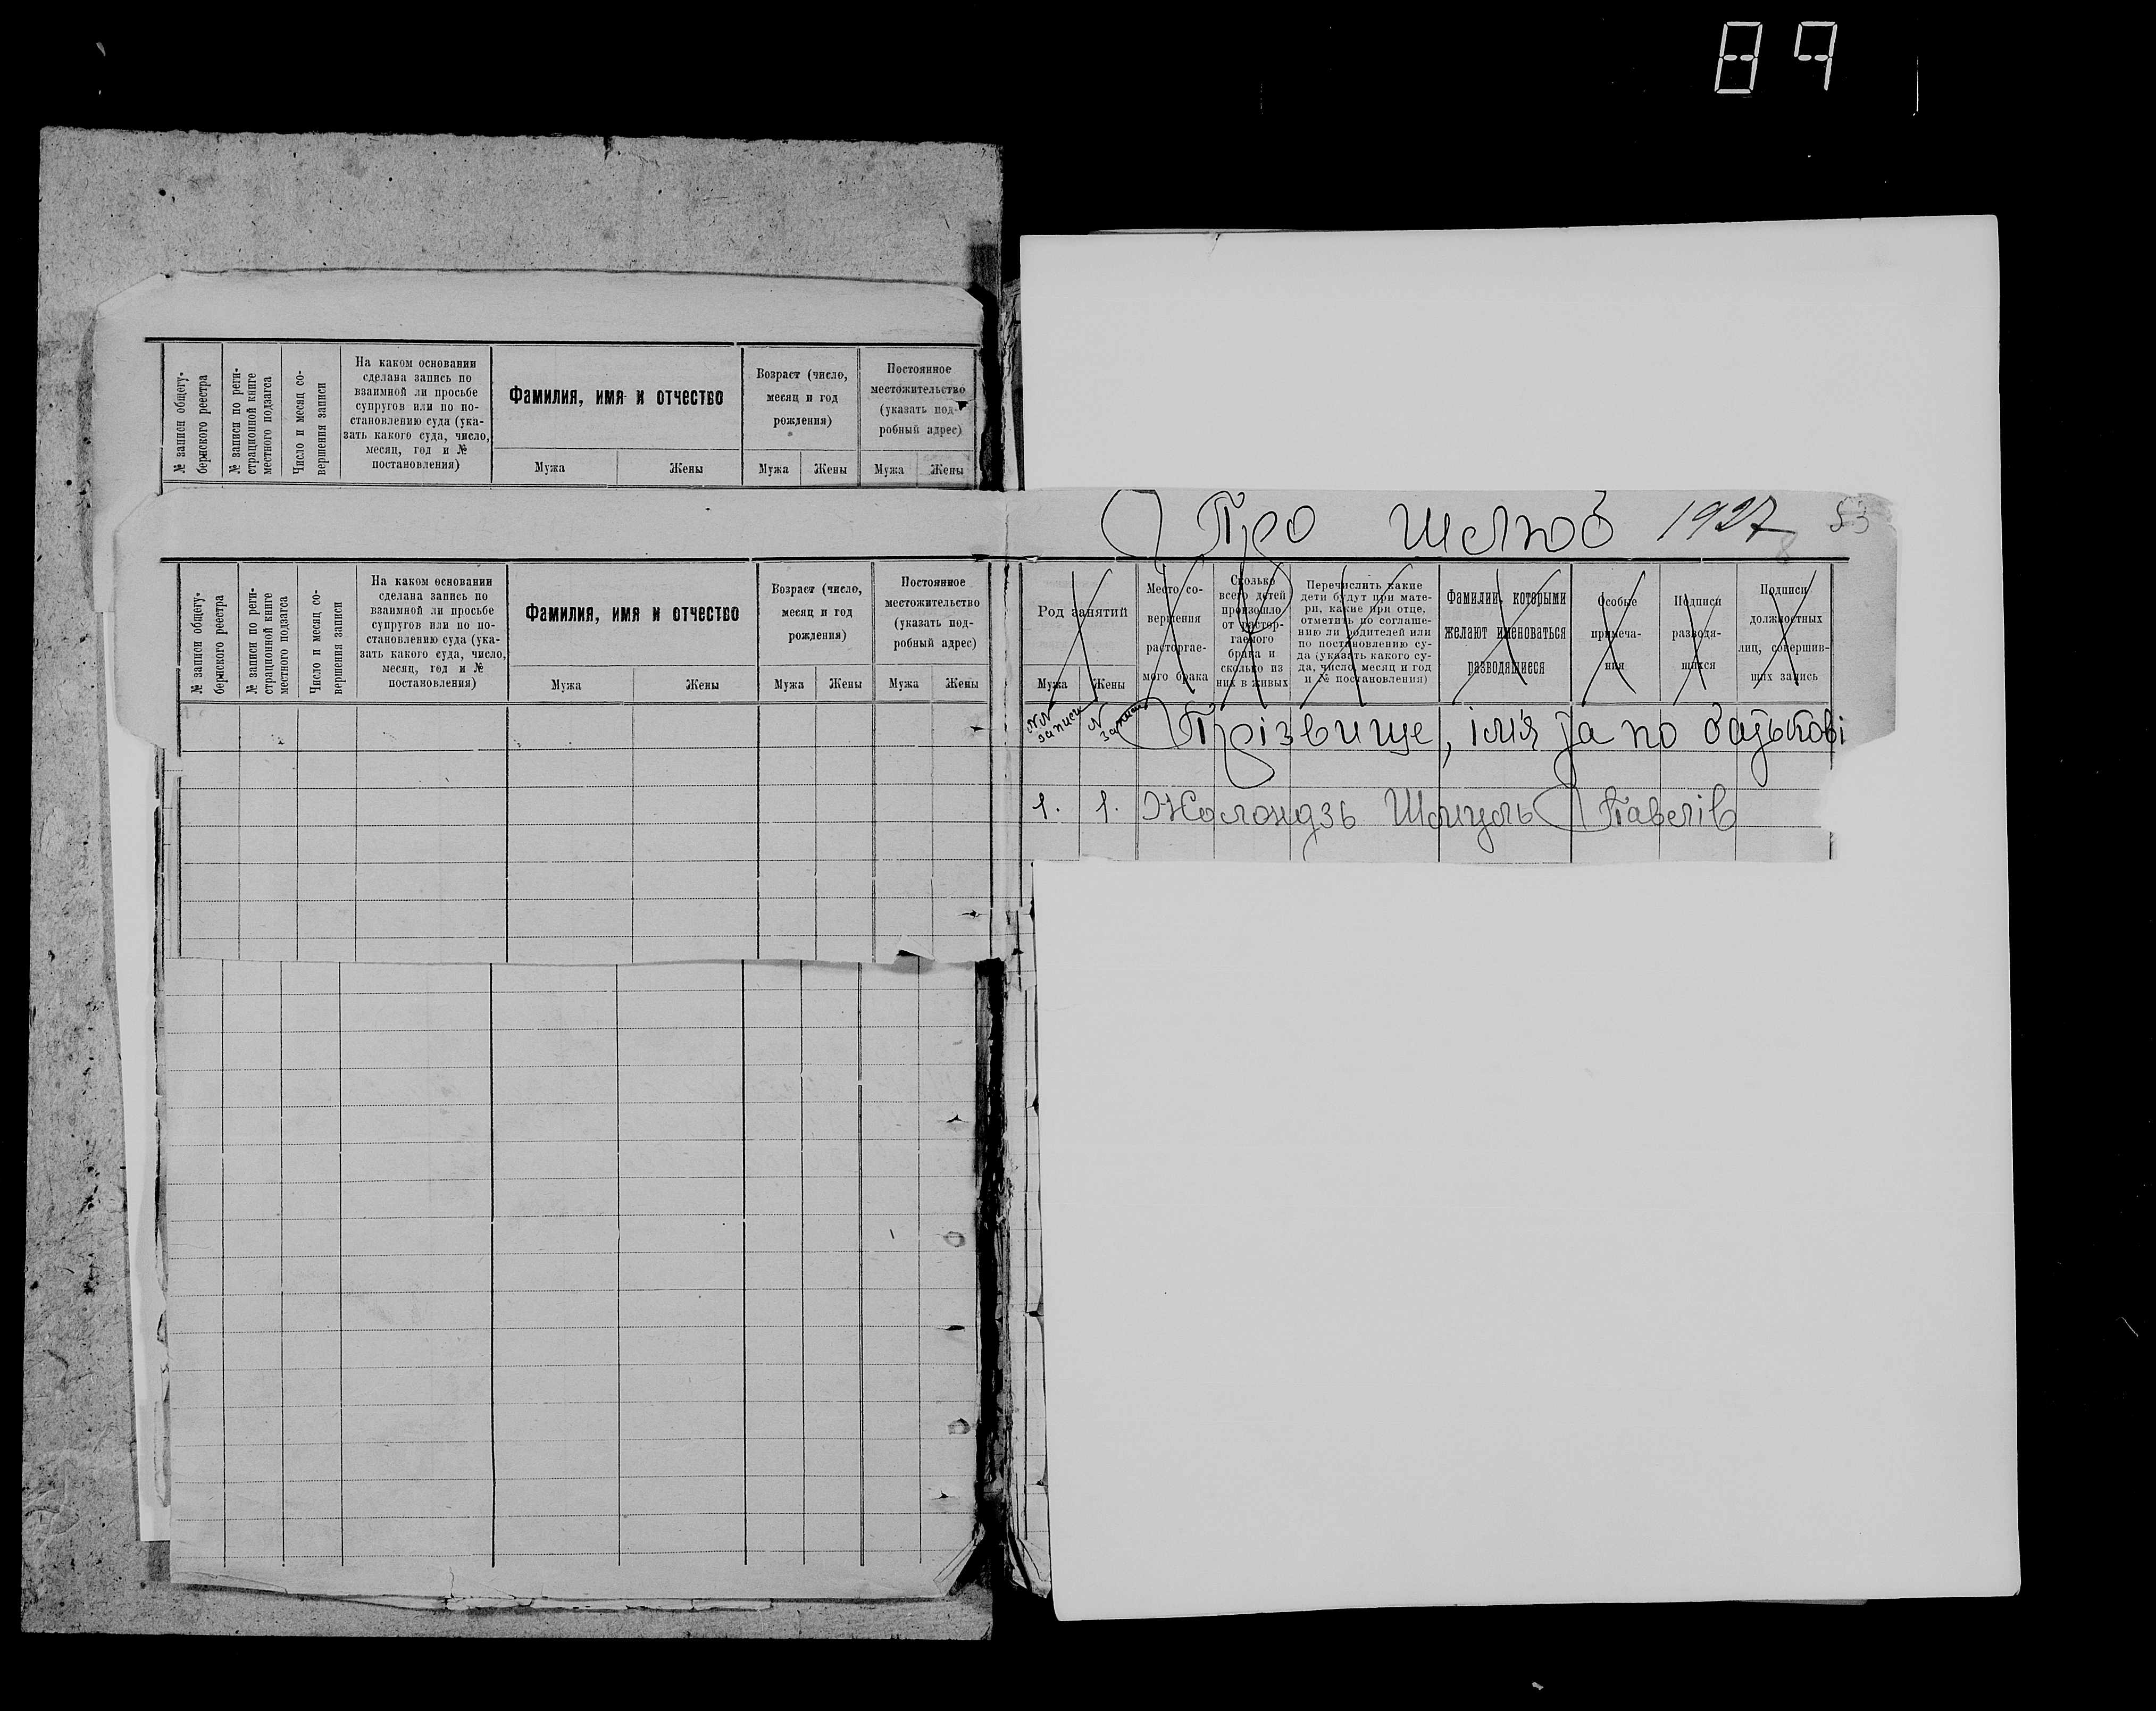 89
№ записи общегу-
бернского реестра
№ записи по реги-
страционной книге
местного подзагса
Число и месяц со-
вершения записи
На каком основании
сделана запись по
взаимной ли просьбе
супругов или по по-
становлению суда (ука-
зать какого суда, число,
месяц, год и №
постановления)
Фамилия, имя и отчество
Мужа Жены
Возраст (число,
месяц и год
рождения)
Мужа Жены
Постоянное
местожительство
(указать под-
робный адрес)
Мужа Жены
Про шлюб 1927
53
№ записи общегу-
бернского реестра
№ записи по реги-
страционной книге
местного подзагса
Число и месяц со-
вершения записи
На каком основании
сделана запись по
взаимной ли просьбе
супругов или по по-
становлению суда (ука-
зать какого суда, число,
месяц, год и №
постановления)
Фамилия, имя и отчество
Мужа Жены
Возраст (число,
месяц и год
рождения)
Мужа Жены
Постоянное
местожительство
(указать под-
робный адрес)
Мужа Жены
Род занятий
Мужа Жены
Место со-
вершения
расторгае-
мого брака
Сколько
всего детей
произошло
от растор-
гаемого
брака и
сколько из
них в живых
Перечислить какие
дети будут при мате-
ри, какие при отце,
отметить по соглаше-
нию ли родителей или
по постановлению су-
да (указать какого су-
да, число, месяц и год
и № постановления)
Фамилии, которыми
желают именоваться
разводящиеся
Особые
примеча-
ния
Подписи
разводя-
щихся
Подписи
должностных
лиц, совершив-
ших запись
NN записи N записи Прізвище, ім'я та по батькові
1. 1. Жолондзь Шмуль Павелів